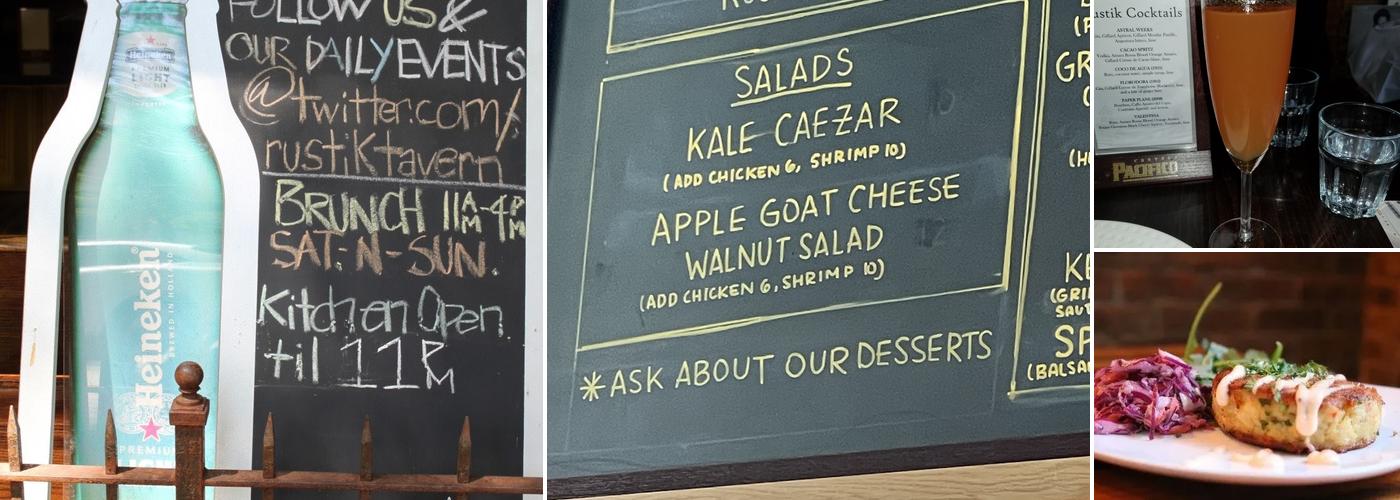 FOLLOW US &
OUR DAILY EVENTS
@twitter.com/
rustiktavern
BRUNCH 11AM-4PM
SAT-N-SUN.
Kitchen Open
til 11PM
Heineken
PREMIUM
LIGHT
Heineken®
BREWED IN HOLLAND
PREMIUM
SALADS
KALE CAEZAR
(ADD CHICKEN 6, SHRIMP 10)
APPLE GOAT CHEESE
WALNUT SALAD
(ADD CHICKEN 6, SHRIMP 10)
*ASK ABOUT OUR DESSERTS
GR
KE
(GRI
SAUT
SP
(BALSA
Cocktails
ASTRAL WEEKS
CACAO SPRITZ
COCO DE AGUA
FLORODORA
PAPER PLANE
VALENTINA
PACIFICO